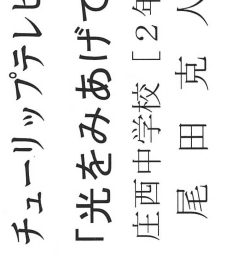 チューリップテレビ
「光をみあげて
庄西中学校［２年
尾田克人